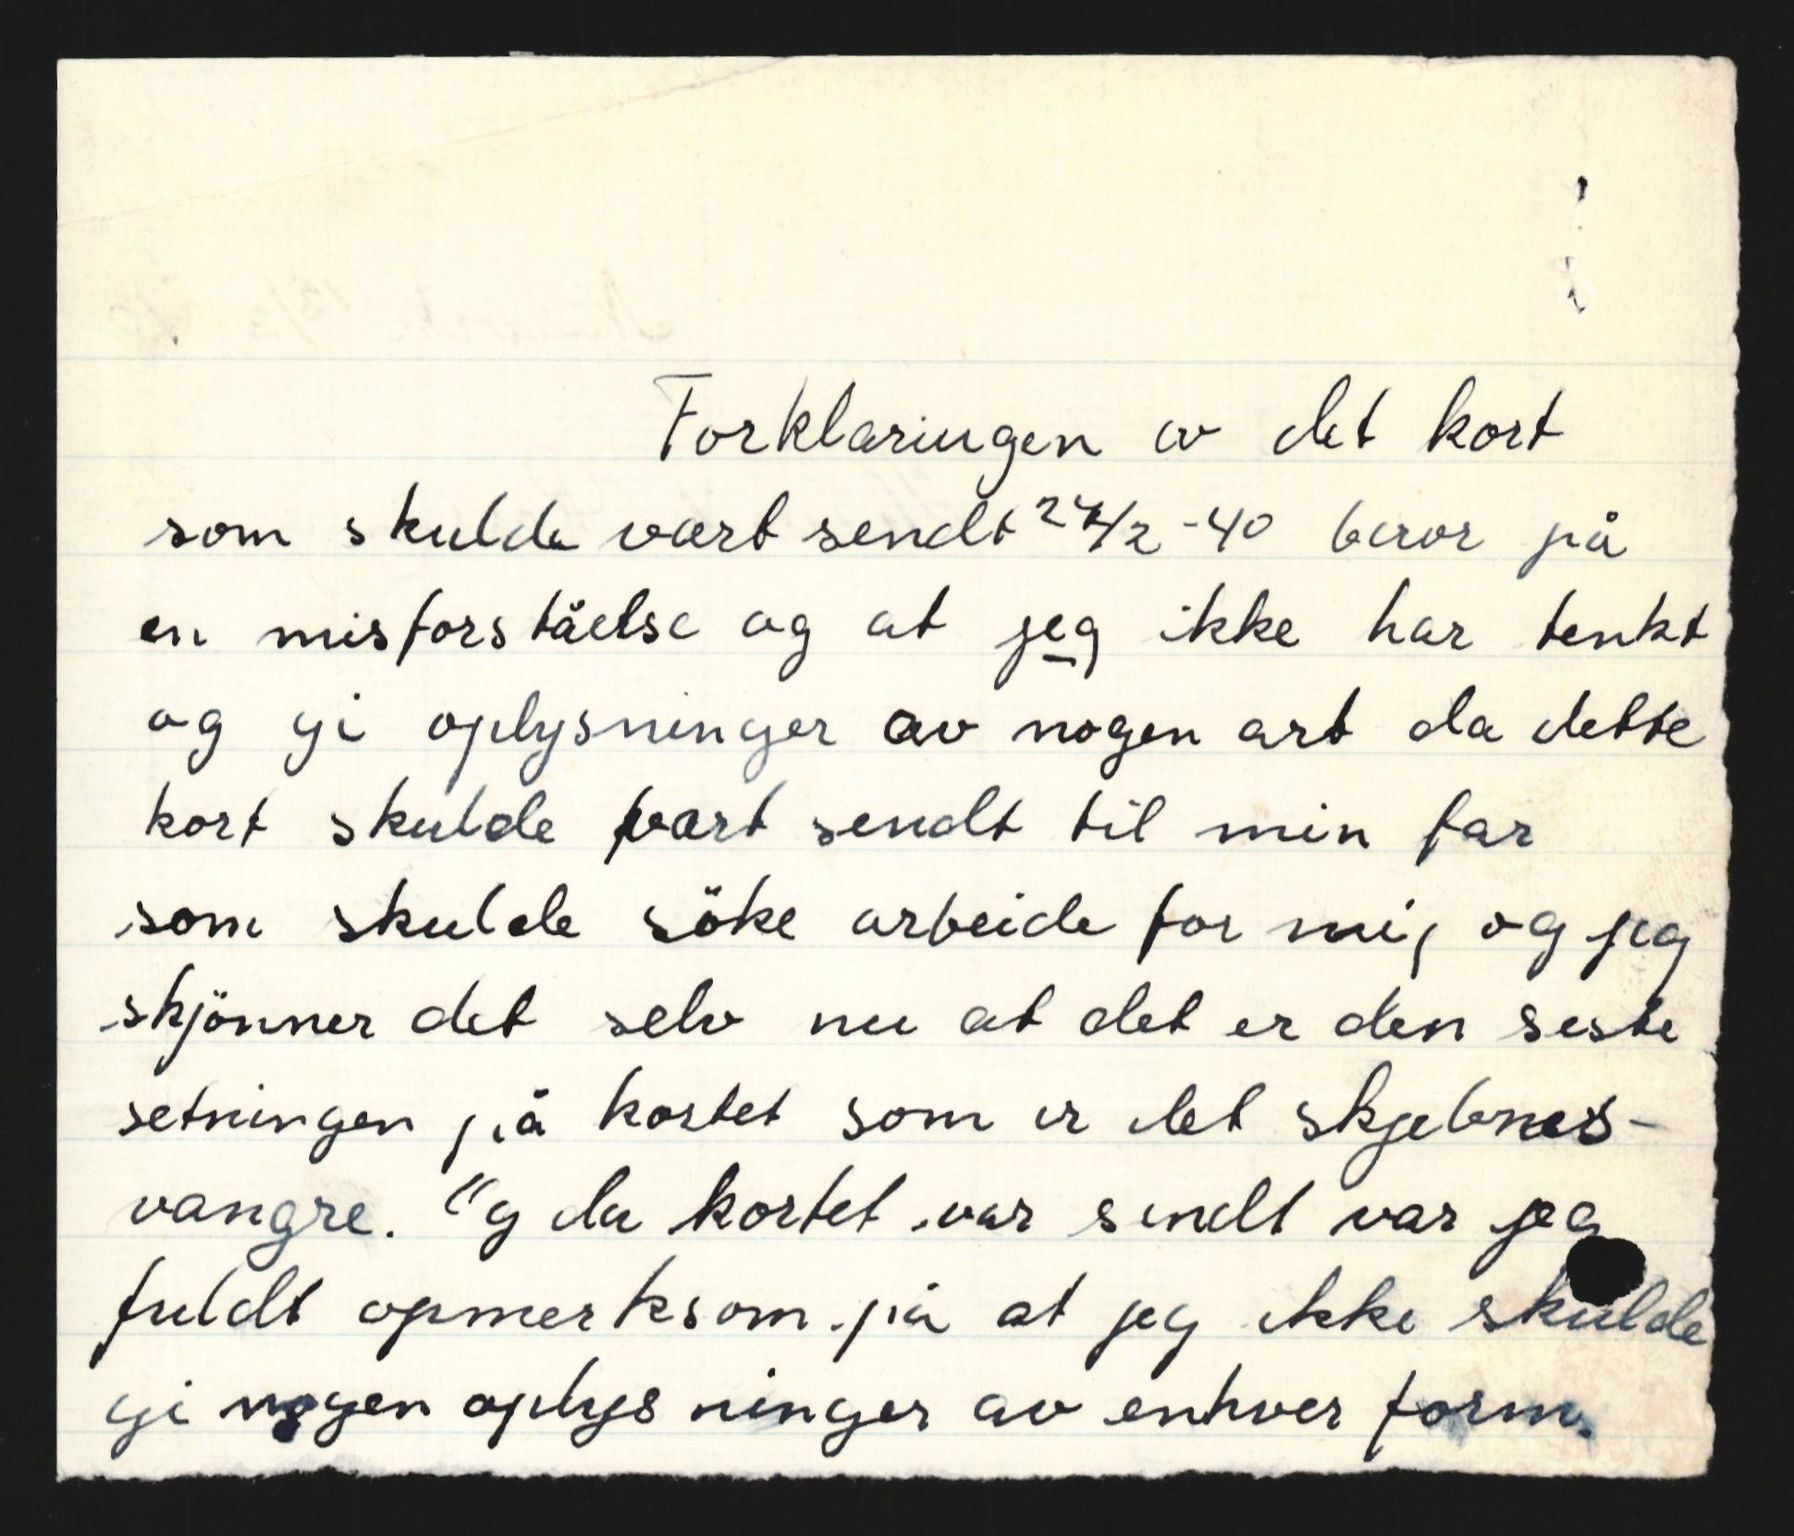 Forklaringen av det kort
som skulde vært sendt 24/2 -40 beror på
en misforståelse og at jeg ikke har tenkt
og gi oplysninger av nogen art da dette
kort skulde vært sendt til min far
som skulde söke arbeide for mig og jeg
skjönner det selv nu at det er den siste
setningen på kortet som er det skjebnes-
vangre. Og da kortet var sendt var jeg
fuldt opmerksom på at jeg ikke skulde
gi nogen oplysninger av enhver form.